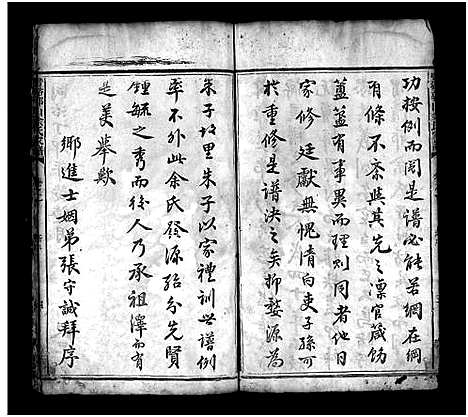 功按例而閱是譜必能若網在綱
有條不紊與其先之凛官箴飭
簠簋有事異而理則同者他日
家修廷獻無愧清白吏子孫可
於重修是譜決之矣抑婺源為
朱子故里朱子以家禮訓世譜例
率不外此余氏發源殆分先賢
鍾毓之秀而後人乃承祖澤而有
是美舉歟
鄉進士姻弟張守誠拜序